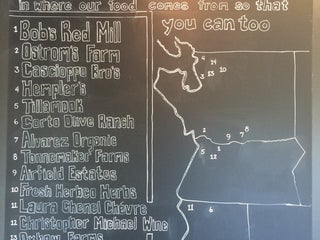 in where our food comes from so that
you can too
1 Bob's Red Mill
2 Ostrom's Farm
3 Cascioppo Bro's
4 Hempler's
5 Tillamook
6 Corto Olive Ranch
7 Alvarez Organic
8 Tonnemaker Farms
9 Airfield Estates
10 Fresh Herbco Herbs
11 Laura Chenel Chévre
12 Christopher Michael Wine
13 Oxbow Farms
4 14
3 13 10
2
9 7 8
1
5 12
11 6